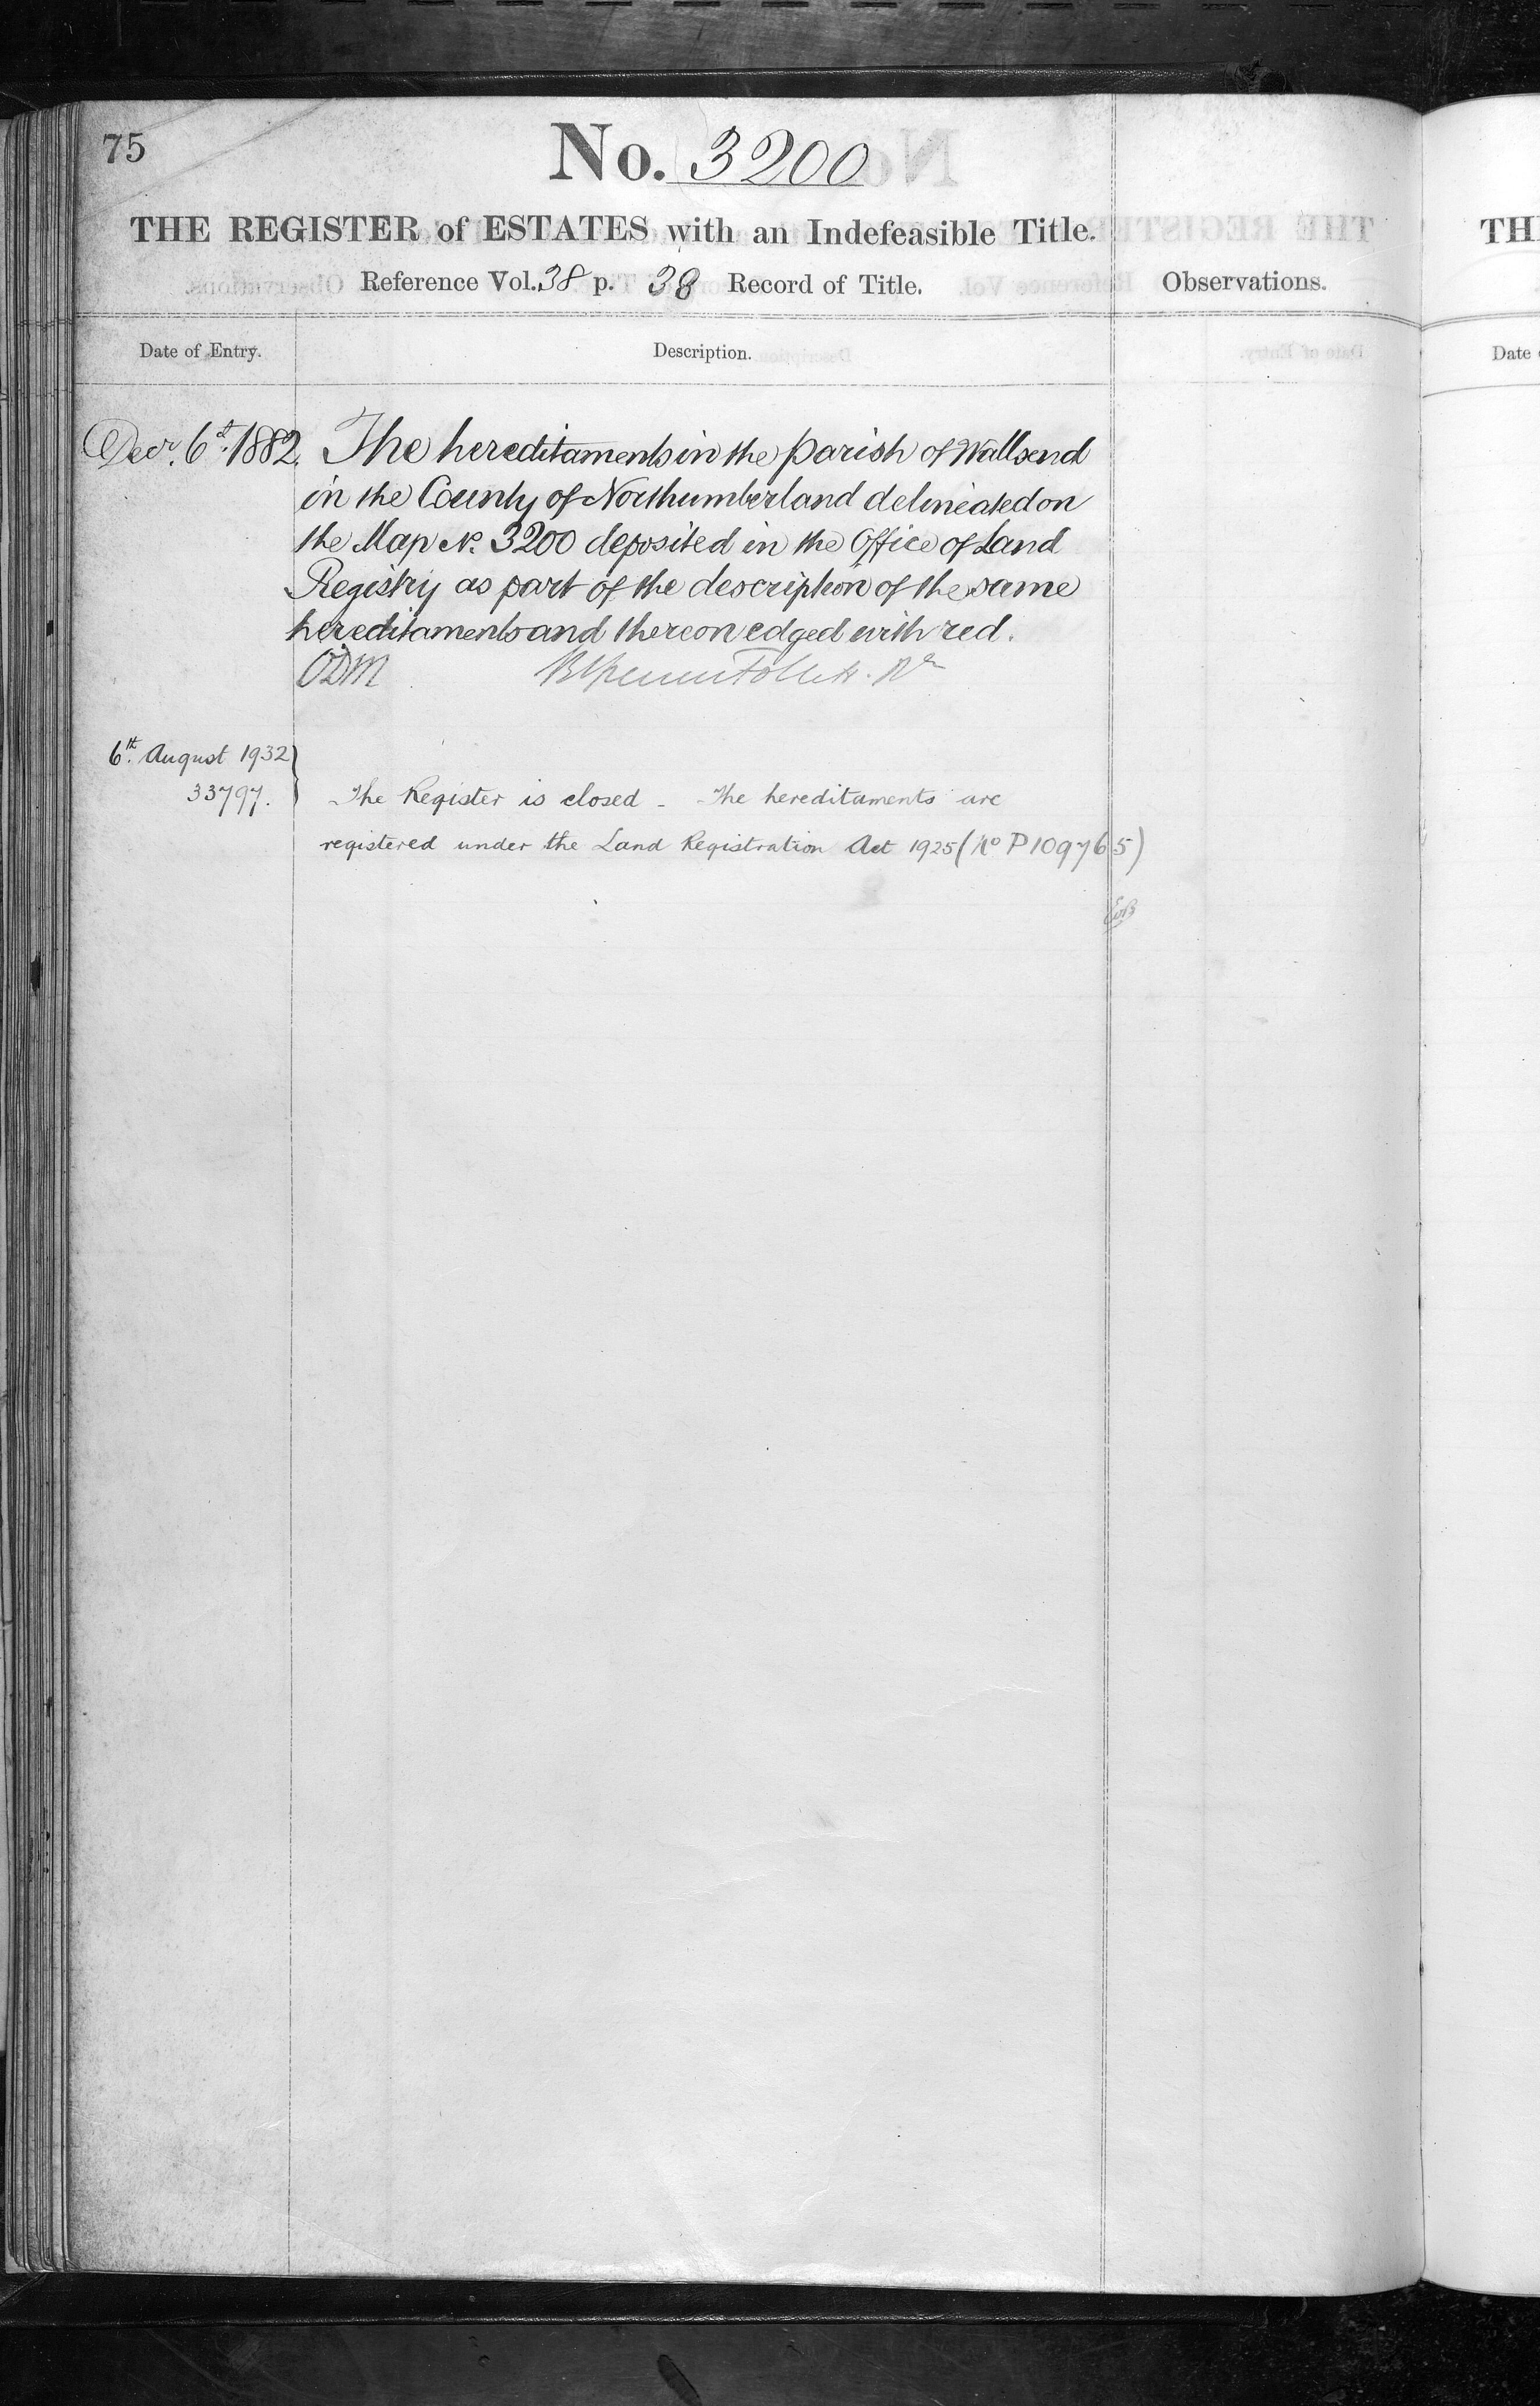 75
No. 3200
THE REGISTER of ESTATES with an Indefeasible Title.
Reference Vol. 38 p. 38 Record of Title.
Observations.
Date of Entry.
Description.
Decr. 6th. 1882. The hereditaments in the parish of Wallsend
in the County of Northumberland delineated on
the Map No. 3200 deposited in the Office of Land
Registry as part of the description of the same
hereditaments and thereon edged with red.
ODM
6th. August 1932
33797. The Register is closed - The hereditaments are
registered under the Land Registration Act 1925 (No P109765)
TH
Date